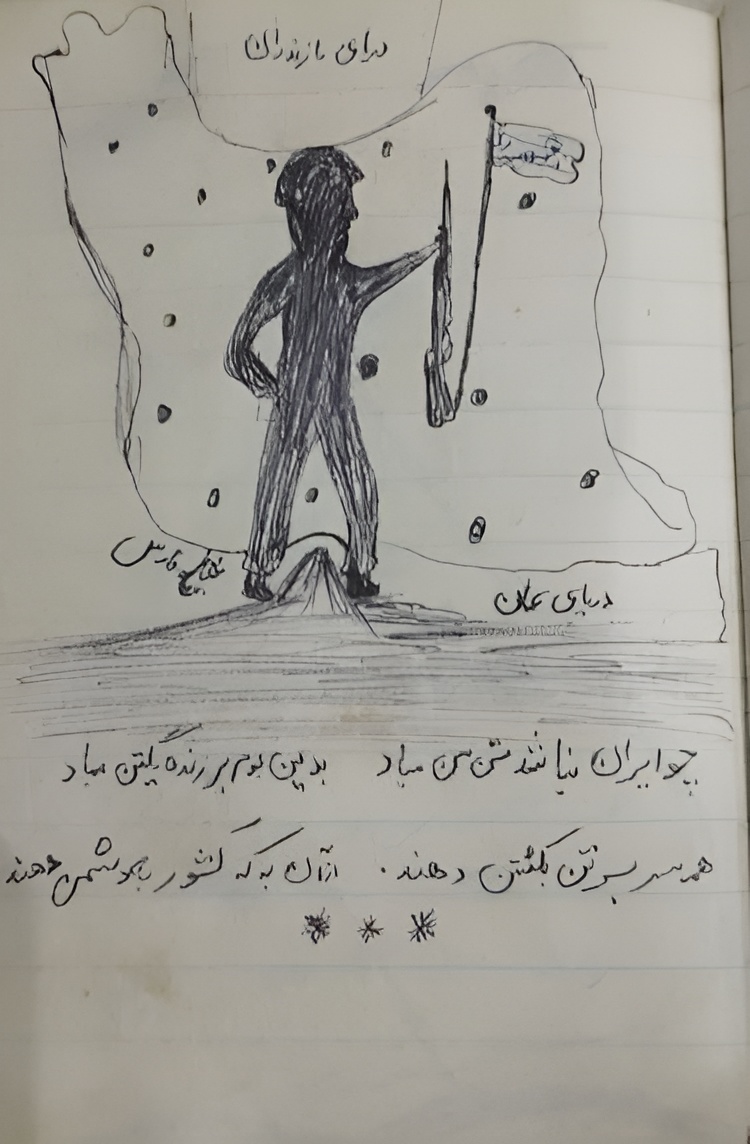 دریای مازندران
خلیج فارس
دریای عمان
چو ایران نباشد تن من مباد بدین بوم بر زنده یکتن مباد
همه سر بسر تن بکشتن دهند . از آن به که کشور بدشمن دهند